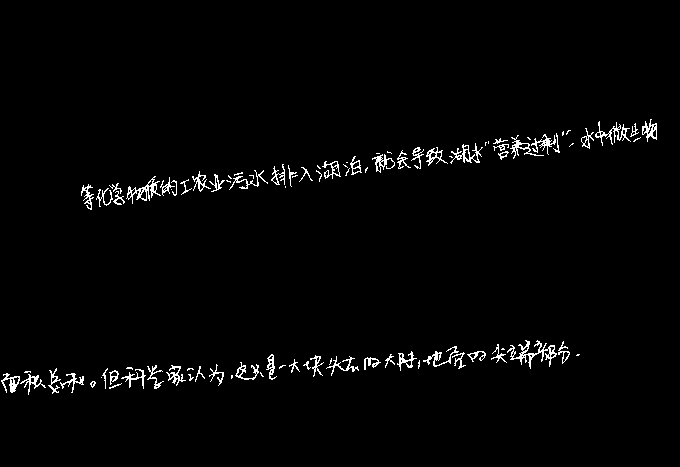 等化学物质的工农业污水排入湖泊,就会导致湖水“营养过剩”、水中微生物
面积总和。但科学家认为,这只是一大块失去的大陆,地层的尖端部分.